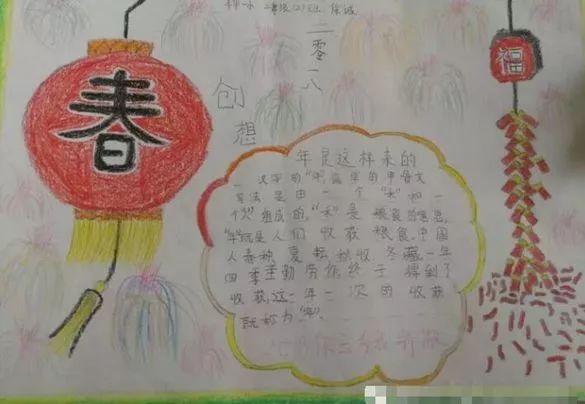 二零一八
创想
春
福
年是这样来的
汉字的“年”最早的甲骨文
写法是由一个“禾”和一
个“人”组成的,“禾”是粮食的意思,
“年”就是人们收获粮食.中国
人春种夏耘秋收冬藏,一年
四季辛勤劳作终于得到了
收获,这一年一次的收获
就称为“年”.